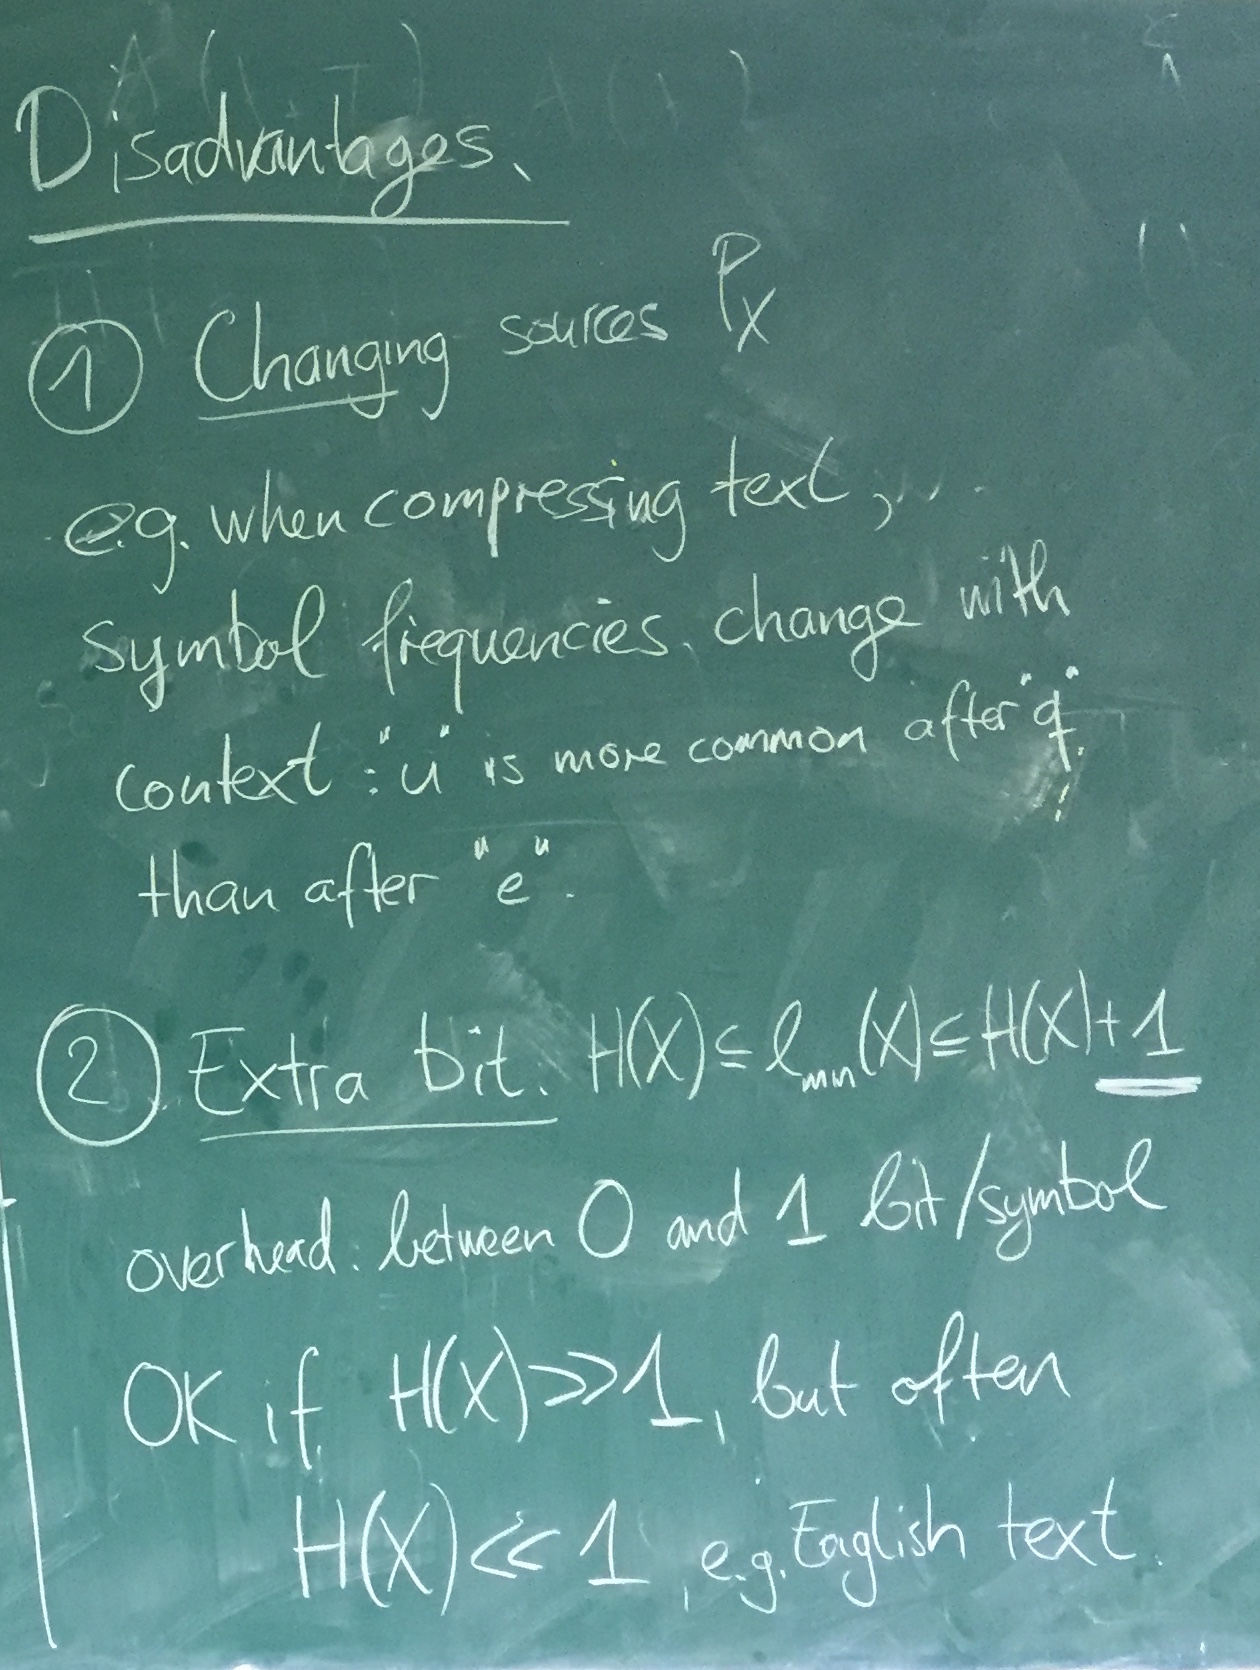 Disadvantages.
① Changing sources P_X
e.g. when compressing text,
symbol frequencies change with
context: "u" is more common after "q"
than after "e".
② Extra bit. H(X) ≤ ℓ_min(X) ≤ H(X) + 1
overhead: between 0 and 1 bit/symbol
OK if H(X) >> 1, but often
H(X) << 1, e.g. English text.